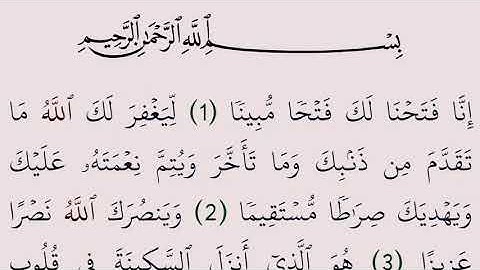 بِسْمِ ٱللَّهِ ٱلرَّحْمَٰنِ ٱلرَّحِيمِ
إِنَّا فَتَحْنَا لَكَ فَتْحًا مُّبِينًا (1) لِّيَغْفِرَ لَكَ ٱللَّهُ مَا
تَقَدَّمَ مِن ذَنۢبِكَ وَمَا تَأَخَّرَ وَيُتِمَّ نِعْمَتَهُۥ عَلَيْكَ
وَيَهْدِيَكَ صِرَٰطًا مُّسْتَقِيمًا (2) وَيَنصُرَكَ ٱللَّهُ نَصْرًا
عَزِيزًا (3) هُوَ ٱلَّذِىٓ أَنزَلَ ٱلسَّكِينَةَ فِى قُلُوبِ